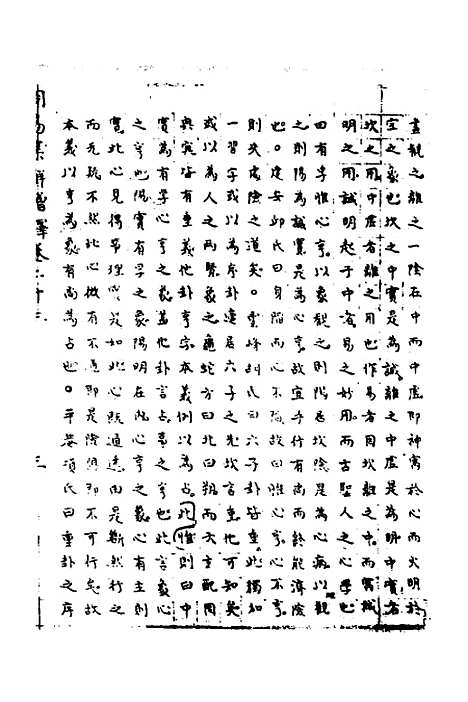 盡觀之離之一陰在中而中虛即神寓於心而火明於
空之象也坎之中實是為誠離之中虛是為明中實者
坎之用中虛者離之用也作易者因坎離之中而寓誠
明之用誠明起于中者易之妙用而古聖人之心學也
曰有孚惟心亨以象觀之則陽居坎陰是為心病以觀
之則陽為誠實是為心亨故宜乎行有尚而終能濟險
也。建安邱氏曰身陷而心不陷故曰維心亨心不亨
則失處險之道矣。雲峰胡氏曰六子卦皆重此獨加
一習字或以為序卦違居六子之先坎言重他可知矣
或以為人之兩腎象之龜蛇方曰北曰朔而天玄配罔
與冥皆有重義他卦亨字本義例以為占此惟則曰中
實為有孚心亨之象葢他卦言占事之亨也此言象心
之亨也陽實有孚之象陽明在內心亨之象心有主則
實此心見得那理明是如此心既通達由是斷然行之
而无疑不然此心微有不通即是險阻即不可行矣故
本義以亨為象有尚為占也。平菴項氏曰重卦之序
周易集解增釋卷之十三
三